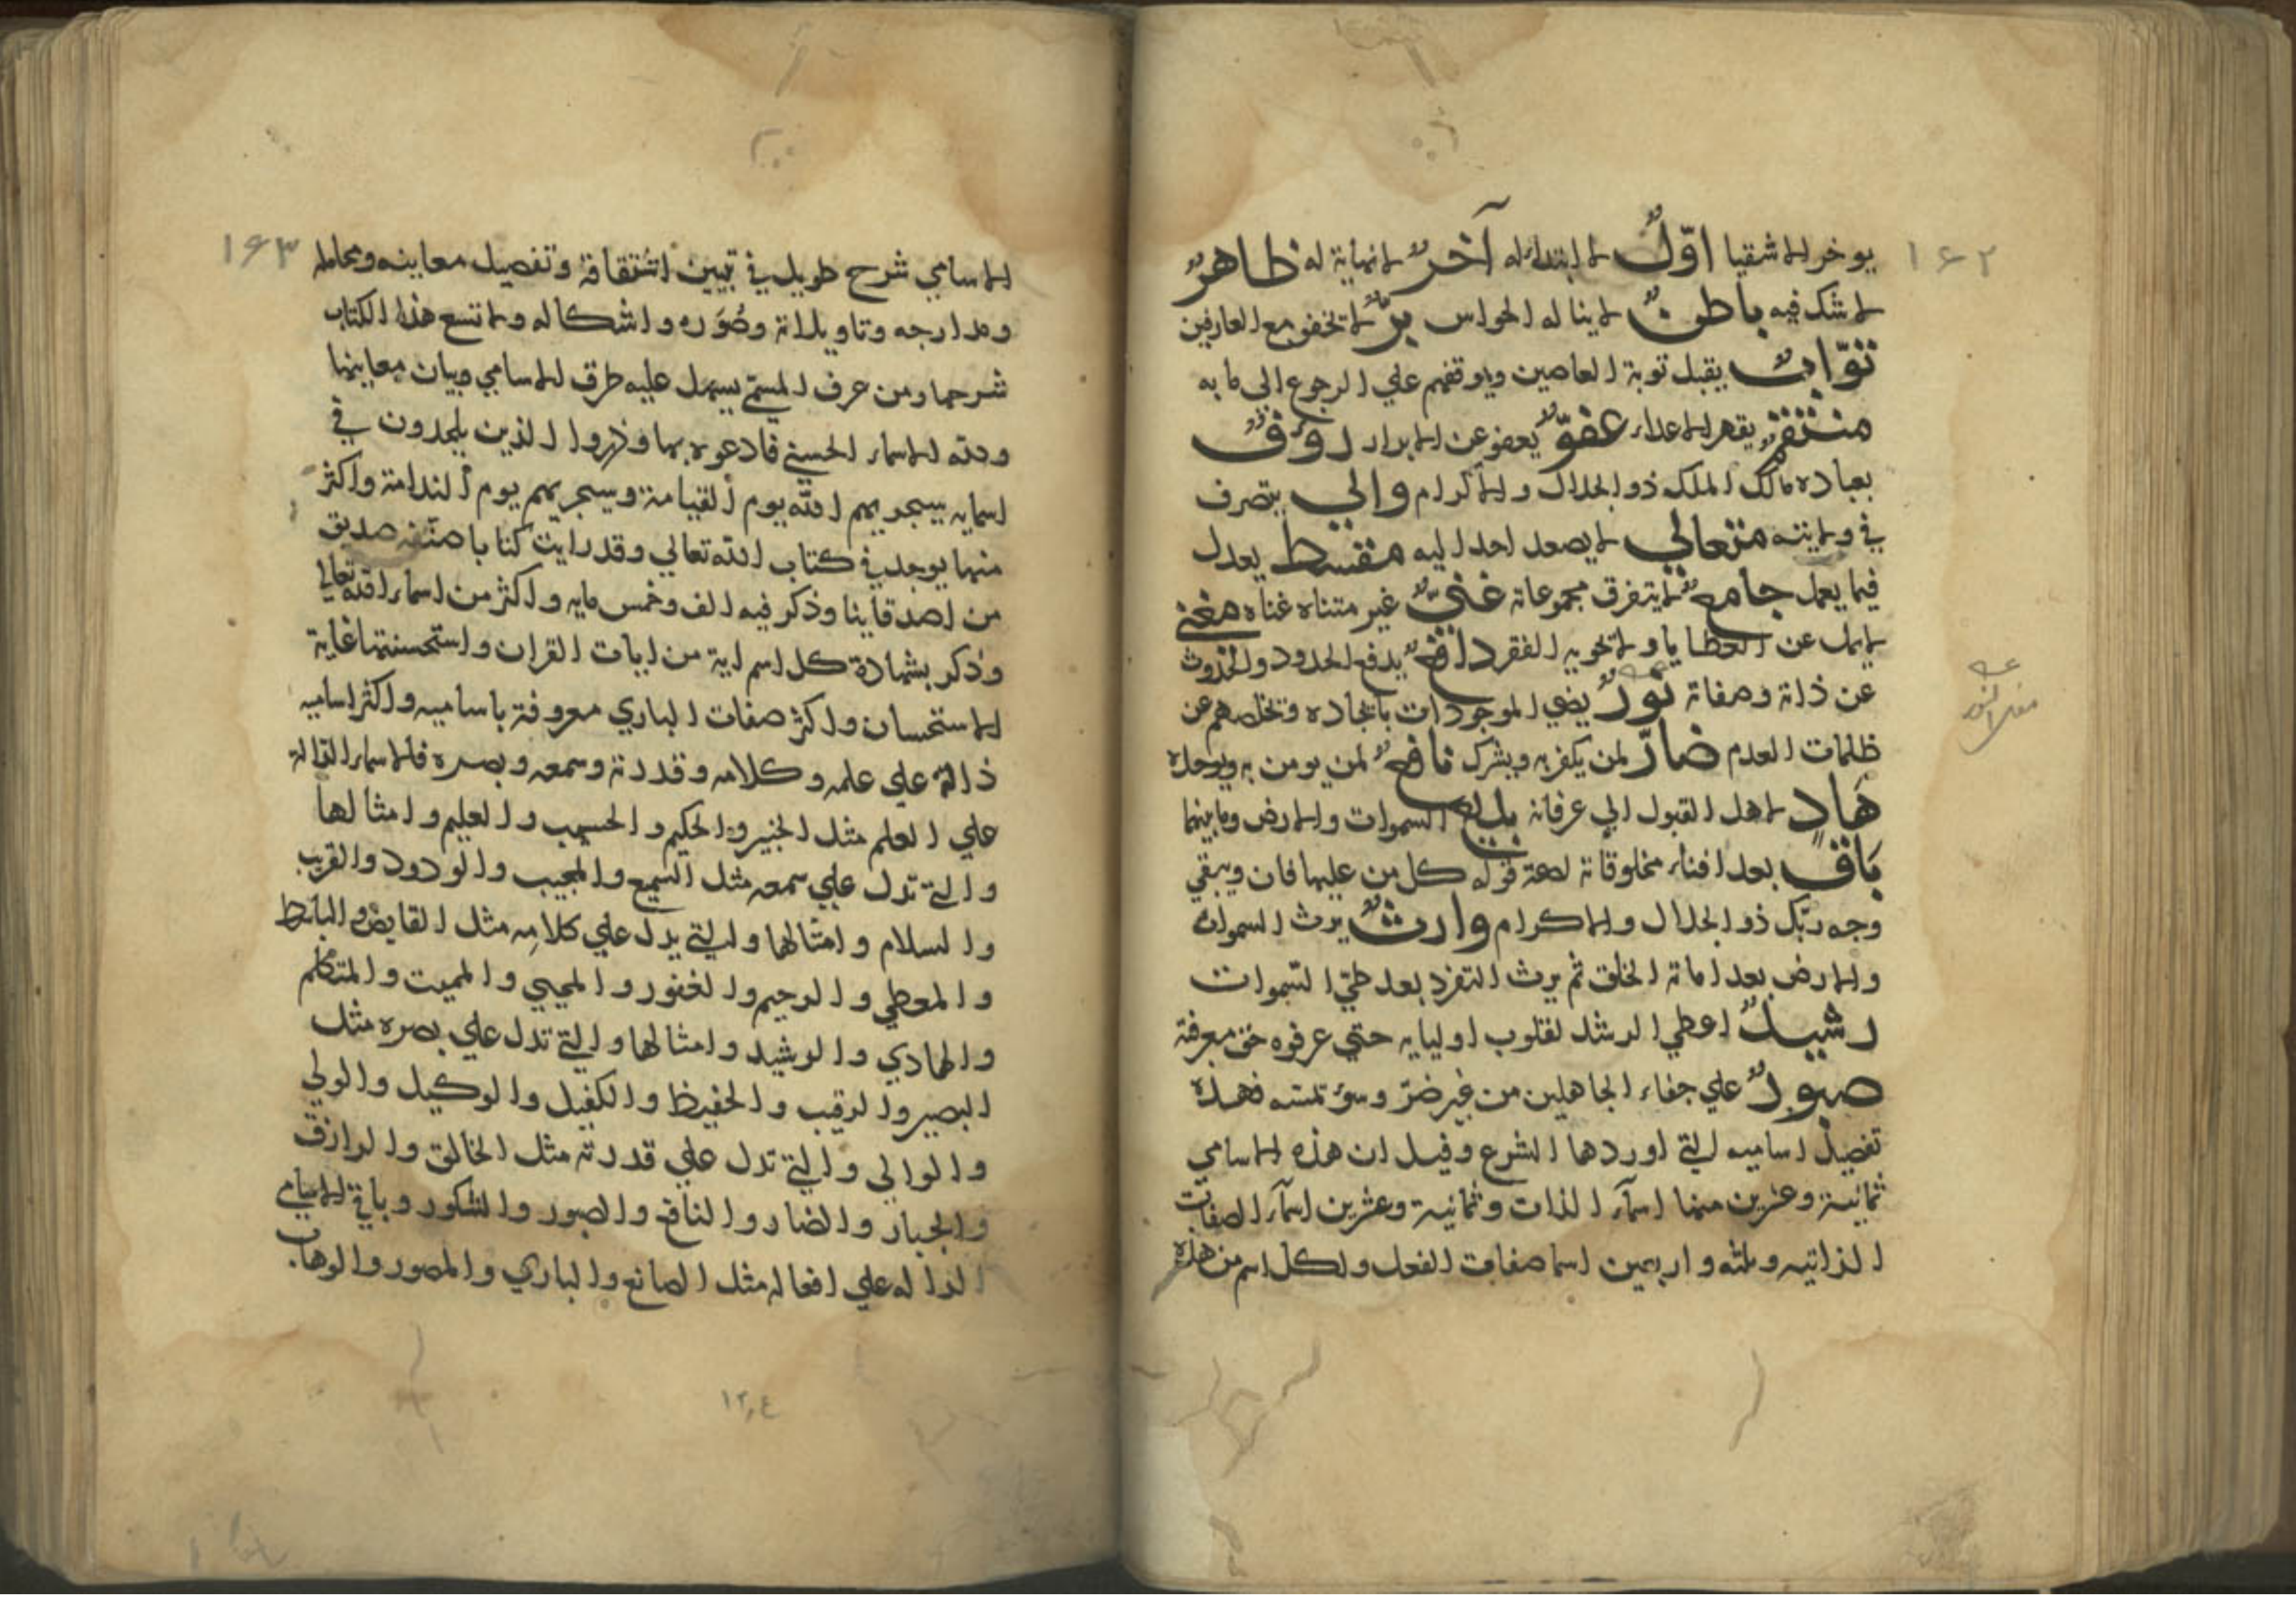 ١٦٢
يوخر الاشقيا اوّلٌ لا ابتداء له آخرٌ لا نهاية له ظاهرٌ
لا شك فيه باطنٌ لا يناله الحواس برٌّ لا تخفو مع العارفين
توّابٌ يقبل توبة العاصين ويوقفهم علي الرجوع الى بابه
منتقمٌ يقهر الاعداء عفوٌّ يعفو عن الابرار روفٌ
بعباده مالك الملك ذو الجلال والاكرام والي يتصرف
في ولايته متعالي لا يصعد احد اليه مقسط يعدل
فيما يعمل جامعٌ لا يتفرق مجموعاته غنيٌّ غير متناه غناه مغني
لا يمل عن العطايا ولا تحويه الفقر دافعٌ يدفع الحدود والحدوث
عن ذاته وصفاته نورٌ يضي الموجودات بايجاده وتخلصهم عن
ظلمات العدم ضارٌّ لمن يكفر به ويشرك نافعٌ لمن يومن به ويوحده
هَادٍ لاهل القبول الي عرفانه بديع السموات والارض وما بينهما
بَاقٍ بعد افناء مخلوقاته لصحة قوله كل من عليها فان ويبقي
وجه ربّك ذو الجلال والاكرام وارثٌ يرث السموات
والارض بعد اماتة الخلق ثم يرث التفرد بعد طيّ السّموات
رشيدٌ اعطي الرشد لقلوب اوليايه حتي عرفوه حق معرفته
صبورٌ علي جفاء الجاهلين من غير ضرّ وسوء تمسّه فهذه
تفصيل اساميه التي اوردها الشرع وقيل ان هذه الاسامي
ثمانية وعشرين منها اسمآء الذات وثمانية وعشرين اسمآء الصفات
الذاتيه وثلثه واربعين اسما صفات الفعل ولكل اسم من هذه
١٦٣
الاسامي شرح طويل في تبيين اشتقاقة وتفصيل معاينه ومحامله
ومدارجه وتاويلاته وصُوَره واشكاله ولا تسع هذا الكتاب
شرحها ومن عرف المسمّي يسهل عليه طرق الاسامي وبيان معاينها
ولله الاسماء الحسني فادعوه بها وذروا الذين يلحدون في
اسمايه سيجزيهم الله يوم القيامة وسيجزيهم يوم الندامة واكثر
منها يوجد في كتاب الله تعالي وقد رايت كتابا صنّفه صديق
من اصدقاينا وذكر فيه الف وخمس مايه واكثر من اسماء الله تعالي
وذكر بشهادة كل اسم اية من ايات القران واستحسنتها غاية
الاستحسان واكثر صفات الباري معروفة باساميه واكثر اساميه
دالة علي علمه وكلامه وقدرته وسمعه وبصره فالاسماء الدالة
علي العلم مثل الخبير والحكيم والحسيب والعليم وامثالها
والتي تدل علي سمعه مثل السميع والمجيب والودود والقريب
والسلام وامثالها والتي يدل علي كلامه مثل القابض والباسط
والمعطي والرحيم والغفور والمحيي والمميت والمتكلم
والهادي والرشيد وامثالها والتي تدل علي بصره مثل
البصير والرقيب والحفيظ والكفيل والوكيل والولي
والوالي والتي تدل علي قدرته مثل الخالق والرازق
والجبار والضار والنافع والصبور والشكور وباقي الاسامي
الداله علي افعاله مثل الصانع والباري والمصور والوهاب